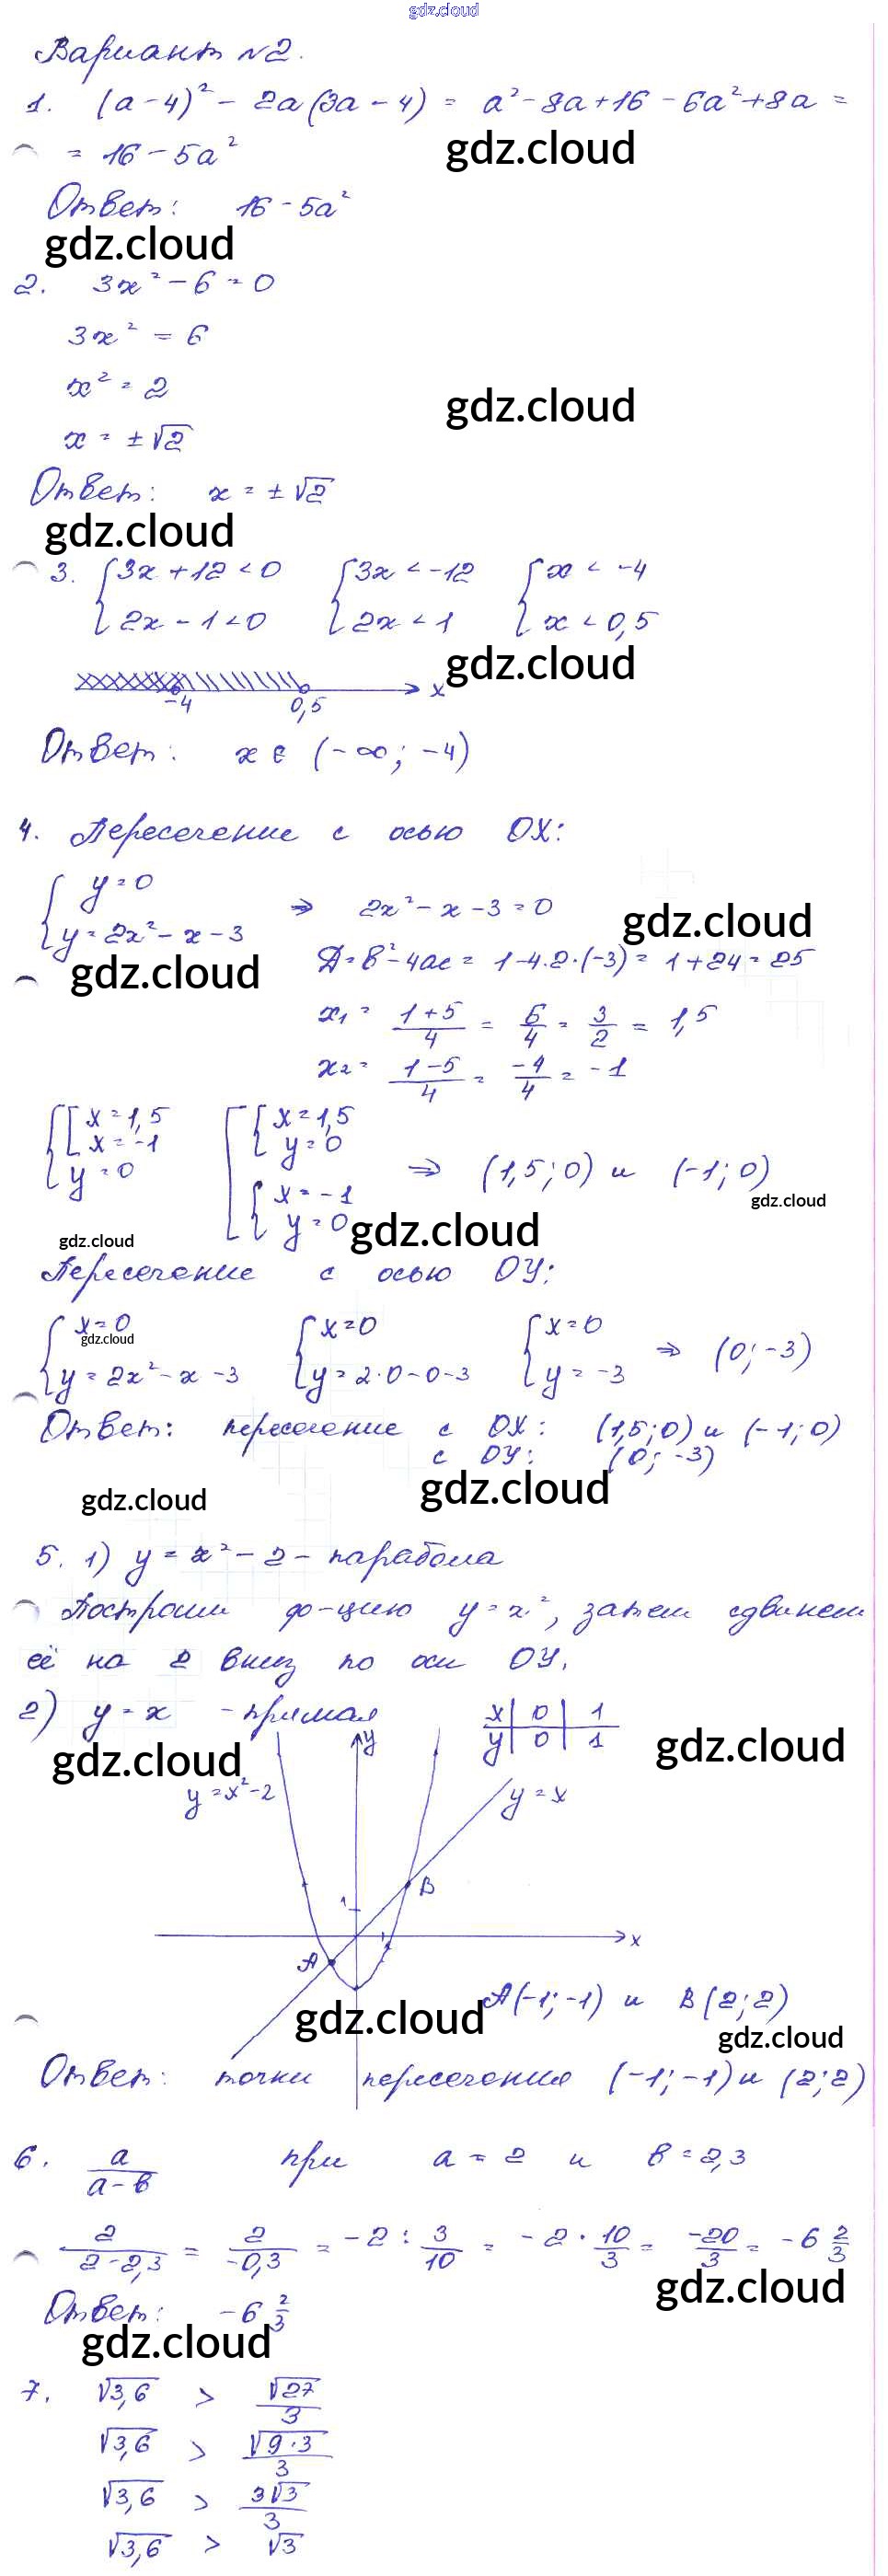 gdz.cloud
Вариант №2.
1. (a-4)² - 2a(3a-4) = a²-8a+16-6a²+8a =
= 16-5a²
gdz.cloud
Ответ: 16-5a²
gdz.cloud
2. 3x²-6=0
3x² = 6
x² = 2
gdz.cloud
x = ±√2
Ответ: x = ±√2
gdz.cloud
3. {3x+12<0 {3x<-12 {x<-4
{2x-1<0 {2x<1 {x<0,5
gdz.cloud
-4 0,5 x
Ответ: x ∈ (-∞; -4)
4. Пересечение с осью OX:
{y=0
{y=2x²-x-3 => 2x²-x-3=0
gdz.cloud
gdz.cloud
Д=b²-4ac = 1-4·2·(-3) = 1+24=25
x₁ = (1+5)/4 = 6/4 = 3/2 = 1,5
x₂ = (1-5)/4 = -4/4 = -1
{[x=1,5 [{x=1,5
[x=-1 {y=0
{y=0 => (1,5;0) и (-1;0)
{x=-1
{y=0
gdz.cloud
gdz.cloud
gdz.cloud
Пересечение с осью OY:
{x=0 {x=0 {x=0
gdz.cloud
{y=2x²-x-3 {y=2·0-0-3 {y=-3 => (0;-3)
Ответ: пересечение с OX: (1,5;0) и (-1;0)
с OY: (0;-3)
gdz.cloud
gdz.cloud
5. 1) y=x²-2 - парабола
Построим ф-цию y=x², затем сдвинем
её на 2 вниз по оси OY.
2) y=x - прямая x | 0 | 1
y | 0 | 1
gdz.cloud
gdz.cloud
y
y=x²-2
y=x
B
1
x
A
A(-1;-1) и B(2;2)
gdz.cloud
gdz.cloud
Ответ: точки пересечения (-1;-1) и (2;2)
6. a/(a-b) при a=2 и b=2,3
2/(2-2,3) = 2/(-0,3) = -2 : 3/10 = -2 · 10/3 = -20/3 = -6 2/3
gdz.cloud
Ответ: -6 2/3
gdz.cloud
7. √3,6 > √27/3
√3,6 > √(9·3)/3
√3,6 > 3√3/3
√3,6 > √3